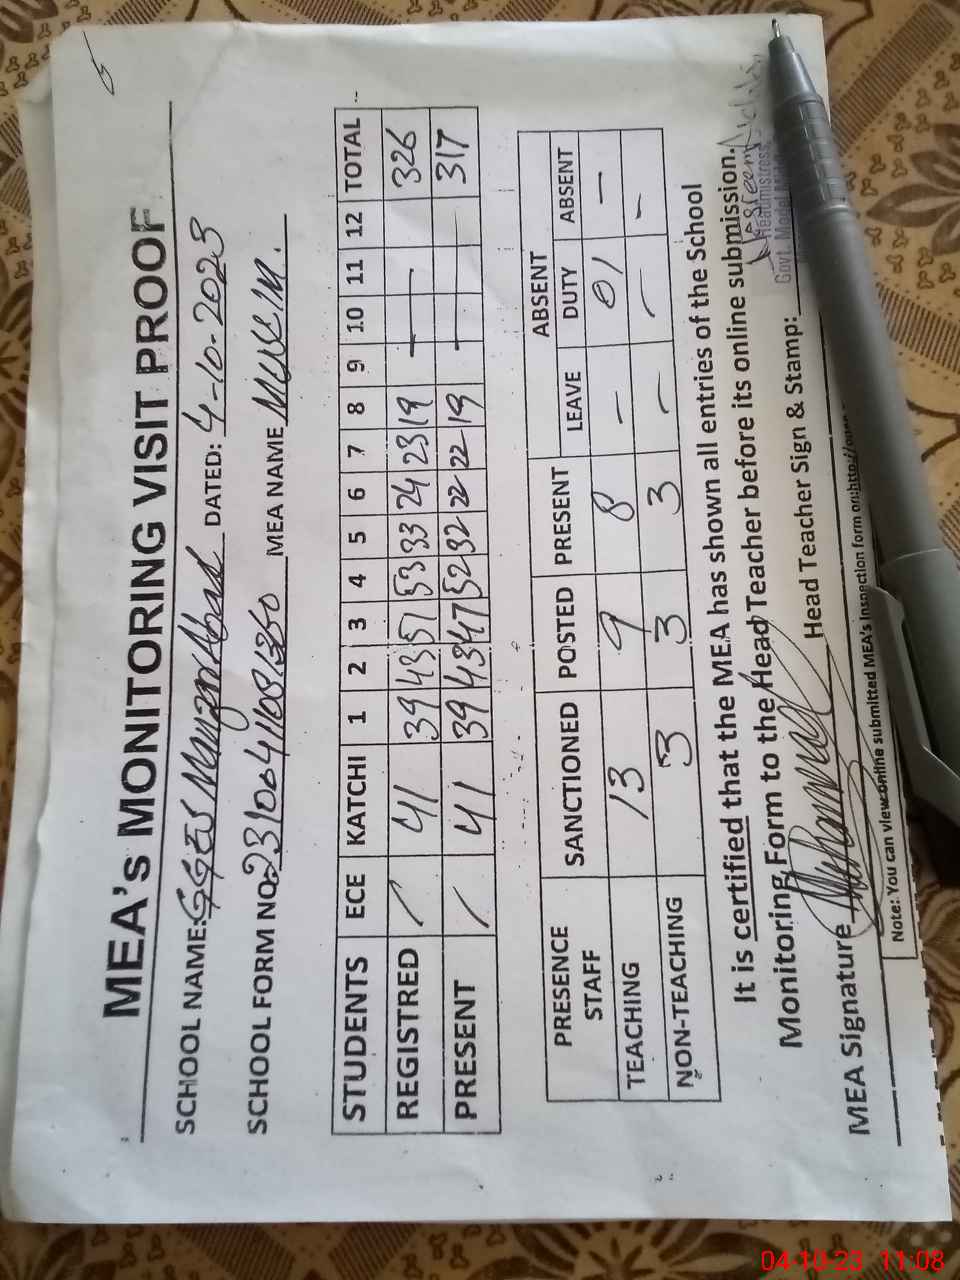 MEA's MONITORING VISIT PROOF
SCHOOL NAME: GGES DATED: 4-10-2023
SCHOOL FORM NO. MEA NAME
STUDENTS ECE KATCHI 1 2 3 4 5 6 7 8 9 10 11 12 TOTAL
REGISTRED / 41 39 43 51 53 33 24 23 19 — — 326
PRESENT / 41 39 43 47 52 32 22 22 19 — — 317
PRESENCE STAFF SANCTIONED POSTED PRESENT ABSENT
LEAVE DUTY ABSENT
TEACHING 13 9 8 — 01 —
NON-TEACHING 3 3 3 — — —
It is certified that the MEA has shown all entries of the School
Monitoring Form to the Head Teacher before its online submission.
Headmistress
Govt. Model
MEA Signature Head Teacher Sign & Stamp:
Note: You can view online submitted MEA's Inspection form on:http://
04-10-23 11:08